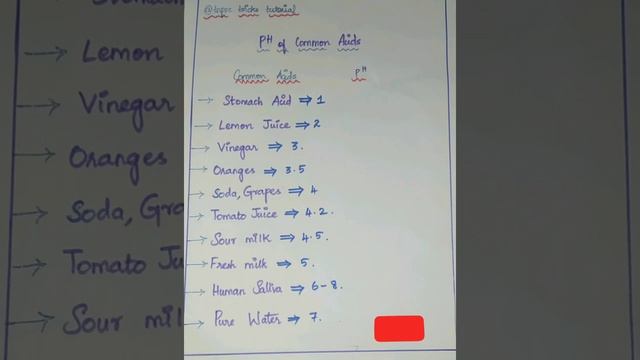 @tnpsc tricks tutorial
PH of Common Acids
Common Acids PH
→ Stomach Acid ⇒ 1
→ Lemon Juice ⇒ 2
→ Vinegar ⇒ 3.
→ Oranges ⇒ 3.5
→ Soda, Grapes ⇒ 4
→ Tomato Juice ⇒ 4.2.
→ Sour milk ⇒ 4.5.
→ Fresh milk ⇒ 5.
→ Human Saliva ⇒ 6-8.
→ Pure Water ⇒ 7.
→ Lemon
→ Vinegar
→ Oranges
→ Soda, Gra
→ Tomato Ju
→ Sour mil